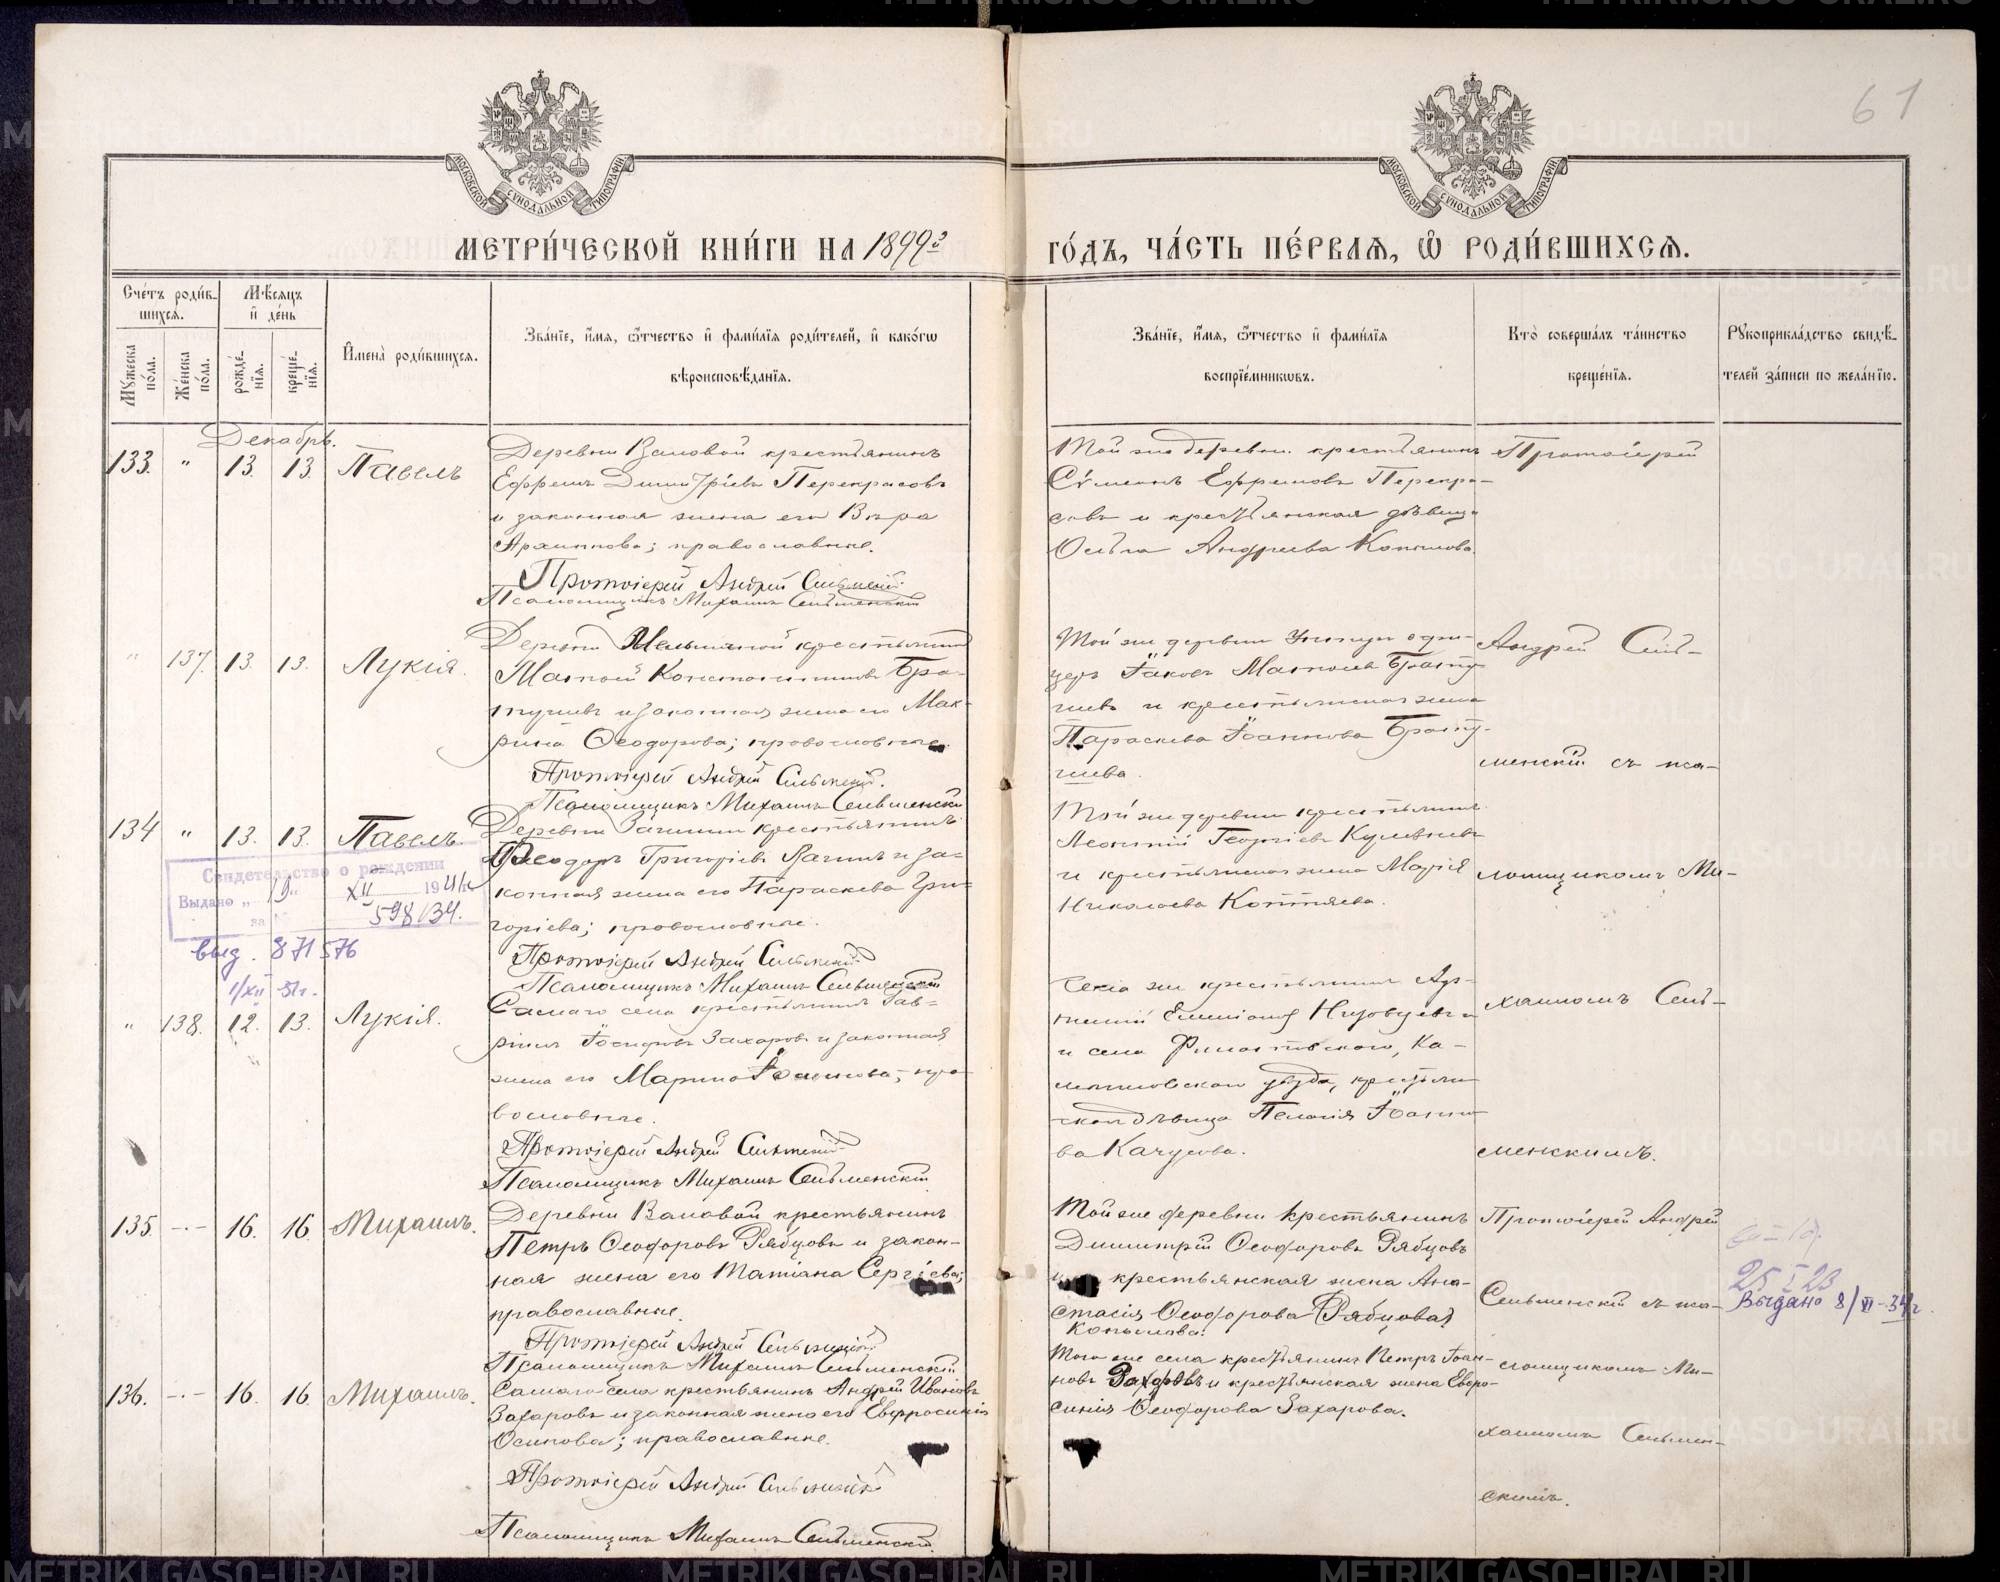 61
МОСКОВСКОЙ СѴНОДАЛЬНОЙ ТИПОГРАФІИ
МОСКОВСКОЙ СѴНОДАЛЬНОЙ ТИПОГРАФІИ
МЕТРИ́ЧЕСКОЙ КНИ́ГИ НА 1899й
ГО́ДЪ, ЧА́СТЬ ПЕ́РВАЯ, Ѡ РОДИ́ВШИХСЯ.
Сче́тъ роди́в-
шихся.
Мѣ́сяцъ
и҆ де́нь
Мꙋ́жеска по́ла.
Же́нска по́ла.
рожде́-нїя.
креще́-нїя.
И҆мена̀ роди́вшихся.
Зва́нїе, и҆́мя, ѻ҆́тчество и҆ фами́лїя роди́телей, и҆ како́гѡ
вѣроисповѣ́данїя.
Зва́нїе, и҆́мя, ѻ҆́тчество и҆ фами́лїя
воспрїе́мникѡвъ.
Кто̀ соверша́лъ та́инство
креще́нїя.
Рꙋкоприкла́дство свидѣ́-
телей за́писи по жела́нїю.
Декабрь.
133. " 13. 13. Павелъ
Деревни Валовой крестьянинъ
Ефремъ Димитріевъ Перекрасовъ
и законная жена его Вѣра
Архиппова; православные.
Протоіерей Андрей Сельменскій
Псаломщикъ Михаилъ Сельменскій
Той же деревни крестьянинъ
Сѵмеонъ Ефремовъ Перекра-
совъ и крестьянская дѣвица
Ольга Андреева Копылова.
Протоіерей
" 137. 13. 13. Лукія.
Деревни Мельничной крестьянинъ
Матѳей Константиновъ Бра-
тушевъ и законная жена его Мак-
рина Ѳеодорова; православные.
Протоіерей Андрей Сельменскій.
Псаломщикъ Михаилъ Сельменскій
Той же деревни
Іаковъ Матѳеевъ Брату-
шевъ и крестьянская жена
Параскева Іоаннова Брату-
шева.
Андрей Сель-
менскій съ пса-
134 " 13. 13. Павелъ.
Деревни крестьянинъ
Ѳеодоръ Григоріевъ и за-
конная жена его Параскева Гри-
горіева; православные.
Протоіерей Андрей Сельменскій
Псаломщикъ Михаилъ Сельменскій
Той же деревни крестьянинъ
Леонтій Георгіевъ
и крестьянская жена Марія
Николаева Коптяева.
ломщикомъ Ми-
Свидетельство о рождении
Выдано „ 19 " XII 1941г
за № 598134.
выд. 871576
1/XII 51г.
" 138. 12. 13. Лукія.
Самаго села крестьянинъ Гав-
ріилъ Іосифовъ Захаровъ и законная
жена его Марина Іоаннова; пра-
вославные.
Протоіерей Андрей Сельменскій
Псаломщикъ Михаилъ Сельменскій
Села же крестьянинъ
и села Ка-
мышловскаго уѣзда, крестьян-
ская дѣвица Пелагія Іоанно-
ва
хаиломъ Сель-
менскимъ.
135. -·- 16. 16. Михаилъ.
Деревни Валовой крестьянинъ
Петръ Ѳеодоровъ Рябцовъ и закон-
ная жена его Татіана Сергіева;
православные.
Протоіерей Андрей Сельменскій
Псаломщикъ Михаилъ Сельменскій
Той же деревни крестьянинъ
Димитрій Ѳеодоровъ Рябцовъ
и крестьянская жена Ана-
стасія Ѳеодорова (Рябцова)
Копылова.
Протоіерей Андрей
Сельменскій съ пса-
25 I 23
Выдано 8/VI-34г.
136. -·- 16. 16. Михаилъ.
Самаго села крестьянинъ Андрей Ивановъ
Захаровъ и законная жена его Евфросинія
Осипова; православные.
Протоіерей Андрей Сельменскій
Псаломщикъ Михаилъ Сельменскій.
Того же села крестьянинъ Петръ Іоан-
новъ Захаровъ и крестьянская жена Евфро-
синія Ѳеодорова Захарова.
ломщикомъ Ми-
хаиломъ Сельмен-
скимъ.
METRIKI.GASO-URAL.RU